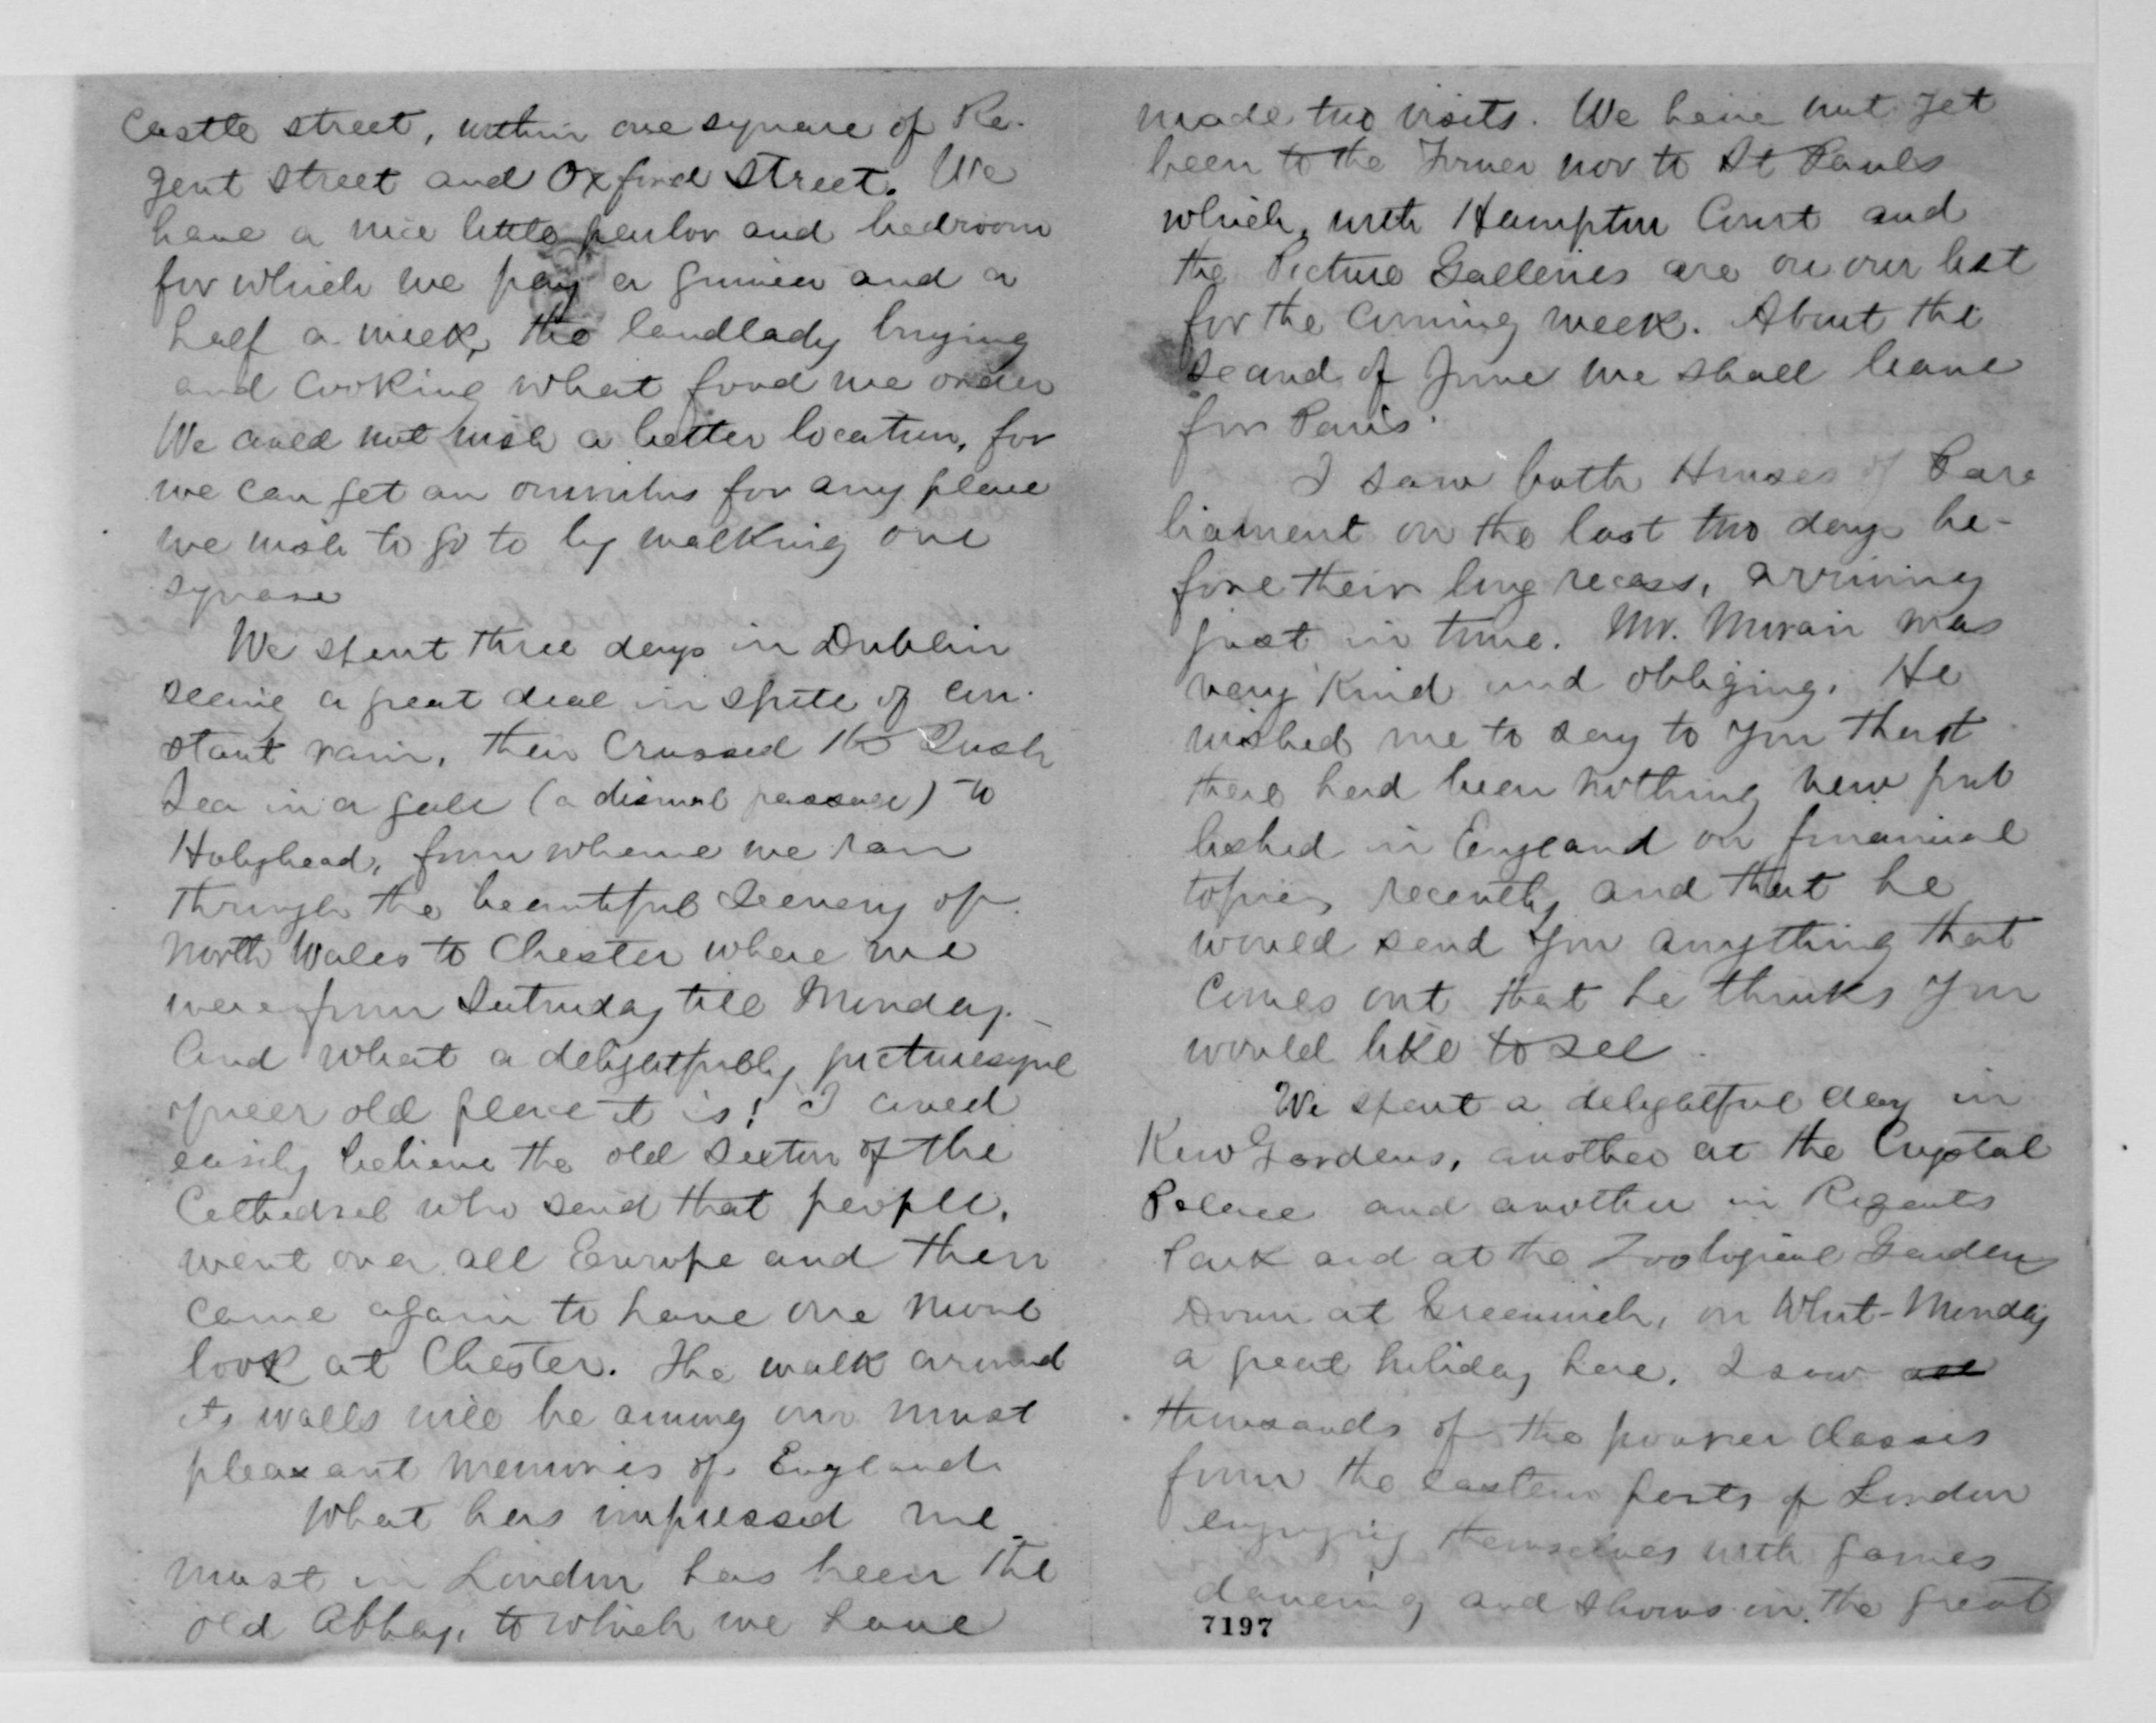 Castle street, within one square of Re-
gent street and Oxford Street. We
have a nice little parlor and bedroom
for which we pay a guinea and a
half a week, the landlady buying
and cooking what food we order
We could not wish a better location, for
we can get an omnibus for any place
we wish to go to by walking one
square
We spent three days in Dublin
seeing a great deal in spite of con-
stant rain, then crossed the Irish
Sea in a gale (a dismal passage) to
Holyhead, from whence we ran
through the beautiful scenery of
North Wales to Chester where we
were from Saturday till Monday.—
And what a delightfully picturesque
queer old place it is! I could
easily believe the old sexton of the
Cathedral who said that people,
went over all Europe and then
came again to have one more
look at Chester. The walk around
its walls will be among our most
pleasant memories of England
What has impressed me
most in London has been the
old Abbey, to which we have
made two visits. We have not yet
been to the Tower nor to St Pauls
which, with Hampton Court and
the Picture Galleries are on our list
for the coming week. About the
second of June we shall leave
for Paris.
I saw both Houses of Par-
liament on the last two days be-
fore their long recess, arriving
just in time. Mr. Moran was
very kind and obliging. He
wished me to say to you that
there had been nothing new pub
lished in England on financial
topics recently and that he
would send you anything that
comes out that he thinks you
would like to see.
We spent a delightful day in
Kew Gardens, another at the Crystal
Palace and another in Regents
Park and at the Zoological Gardens
Down at Greenwich, on Whit-Monday
a great holiday here, I saw all
thousands of the poorer classes
from the eastern parts of London
enjoying themselves with games
dancing and shows in the great
7197